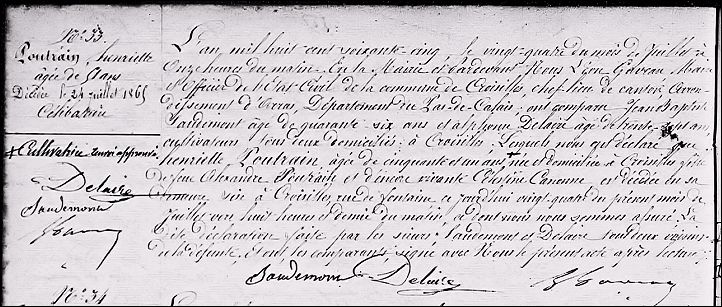 N° 33
Poutrain, henriette
âgée de 51 ans
Décédée le 24 juillet 1865
Célibataire
+ Cultivatrice renvoi approuvé
Delaire
Saudemont
L'an mil huit cent soixante cinq, le vingt-quatre du mois de juillet à
Onze heures du matin. En la Mairie et Pardevant Nous Maire
et Officier de l'Etat-Civil de la commune de Croisilles, chef-lieu de canton, Arron-
dissement d'Arras, Département du Pas-de-Calais; ont comparu Jean Baptiste
Saudemont âgé de quarante-six ans et Alphonse Delaire âgé de trente-sept ans,
cultivateurs tous deux domiciliés à Croisilles. Lesquels nous ont déclaré que
henriette Poutrain, âgée de cinquante et un ans, née et domiciliée à Croisilles, fille
de feu Alexandre Poutrain et d'encore vivante Célestine Canonne est décédée en sa
demeure sise à Croisilles, rue de fontaine ce jourd'hui vingt-quatre du présent mois de
juillet vers huit heures et demie du matin, ce dont nous nous sommes assuré. La
dite déclaration faite par les sieurs Saudemont et Delaire tous deux voisins
de la défunte, et ont les comparants, signé avec Nous le présent acte après lecture.
Saudemont Delaire
N° 34